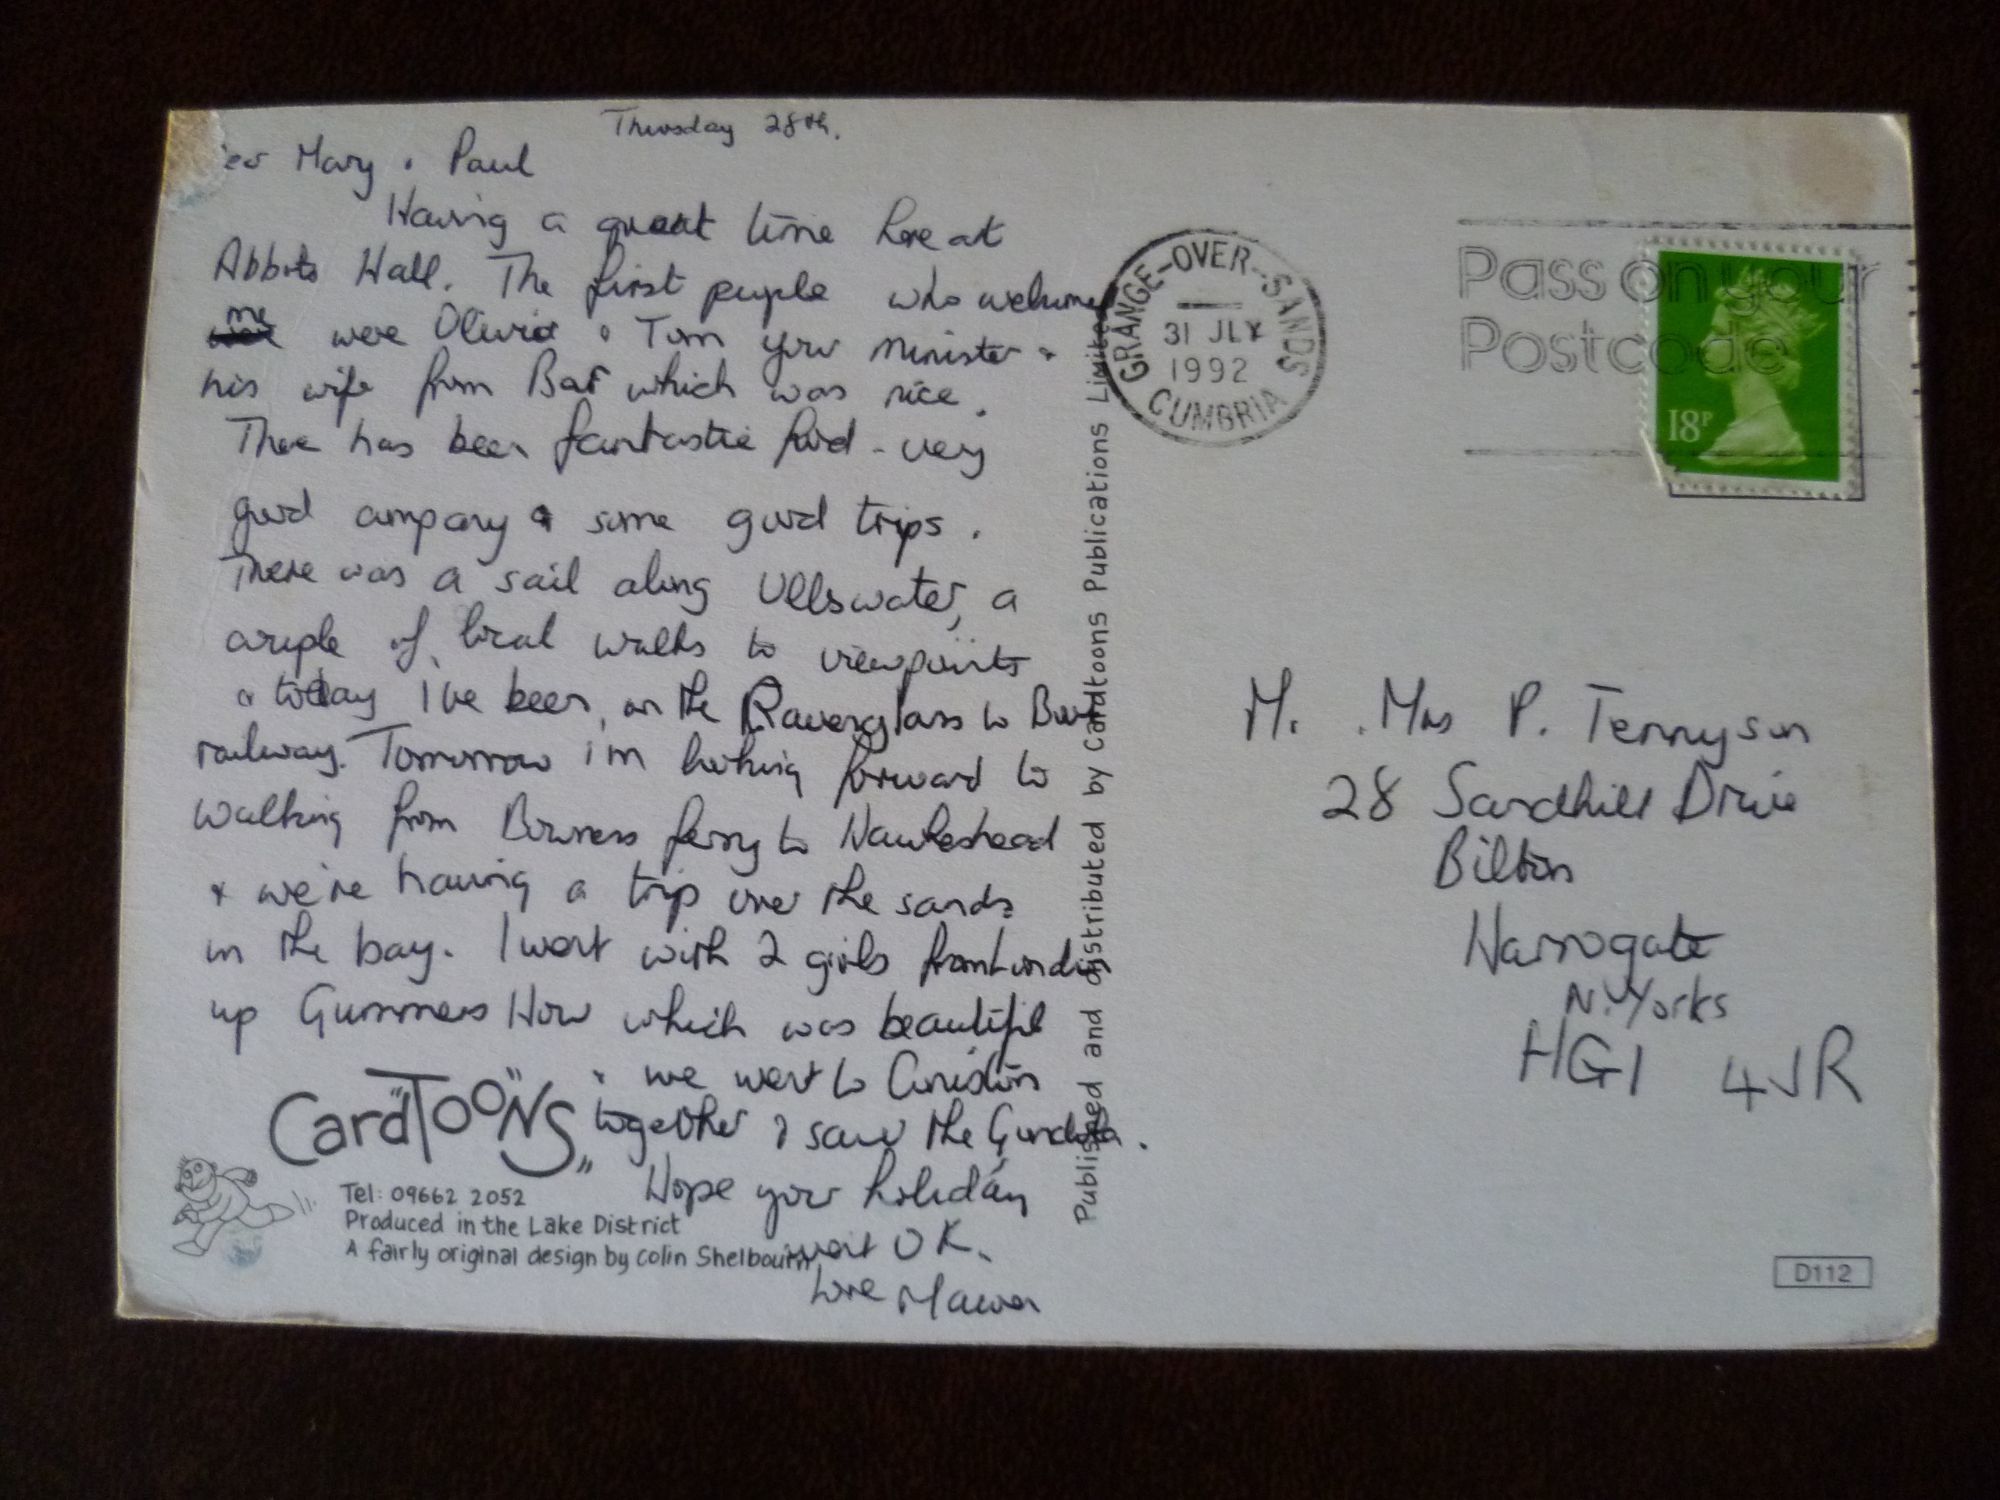 Thursday 28th.
Mary & Paul
Having a great time here at
Abbots Hall. The first people who welcomed
me were Olivia & Tom your minister &
his wife from which was nice.
There has been fantastic food - very
good company & some good trips.
There was a sail along Ullswater, a
couple of local walks to viewpoints
& today I've been on the Ravenglass to
railway. Tomorrow i'm looking forward to
walking from Bowness ferry to Hawkeshead
& we're having a trip over the sands
in the bay. I went with 2 girls from London
up Gummers How which was beautiful
& we went to Coniston
together & saw the Gondola.
Hope your holiday
went OK.
Love
CARDTOONS
Tel: 09662 2052
Produced in the Lake District
A fairly original design by Colin Shelbourn
Published and distributed by Cardtoons Publications Limited
GRANGE-OVER-SANDS
31 JLY
1992
CUMBRIA
Pass on your
Postcode
18P
M. . Mrs P. Tennyson
28 Sandhill Drive
Bilton
Harrogate
N. Yorks
HG1 4JR
D112